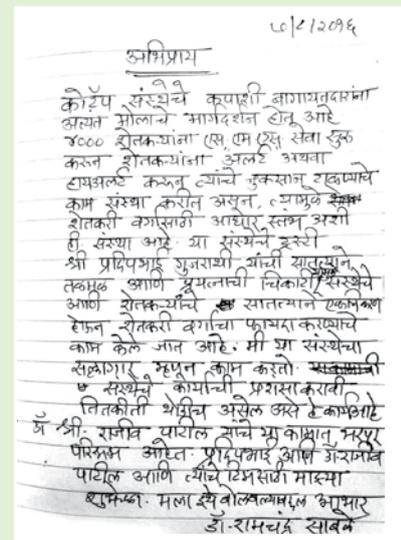 ७/८/२०१६
अभिप्राय
कोटॅप संस्थेचे कपाशी बागायतदारांना
अत्यंत मोलाचे मार्गदर्शन होत आहे
४००० शेतकऱ्यांना एस.एम.एस सेवा सुरू
करून शेतकऱ्यांना अलर्ट अथवा
हायअलर्ट करून त्यांचे नुकसान टाळण्याचे
काम संस्था करीत असून, त्यामुळे
शेतकरी वर्गासाठी आधार स्तंभ अशी
ही संस्था आहे. या संस्थेचे ट्रस्टी
श्री प्रदिपभाई गुजराथी यांची सातत्याने
तळमळ आणि प्रयत्नाची चिकाटी संस्थेचे
आणि शेतकऱ्यांचे सातत्याने
होऊन शेतकरी वर्गाचा फायदा करण्याचे
काम केले जात आहे. मी या संस्थेचा
सल्लागार म्हणून काम करतो.
संस्थेचे कार्याची प्रशंसा करावी
तितकीती थोडीच असेल असे हे कार्य आहे
डॉ. श्री. राजीव पाटील यांचे या कामात भरपूर
परिश्रम आहेत. प्रदिपभाई आणि डॉ. राजीव
पाटील आणि त्यांचे टिमसाठी माझ्या
शुभेच्छा. मला इथे बोलवल्याबद्दल आभार
डॉ. रामचंद्र साबळे